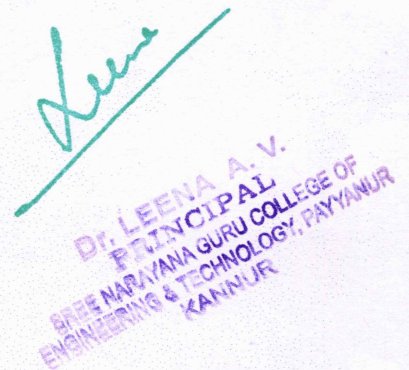 Leena
Dr. LEENA A. V.
PRINCIPAL
SREE NARAYANA GURU COLLEGE OF
ENGINEERING & TECHNOLOGY, PAYYANUR
KANNUR